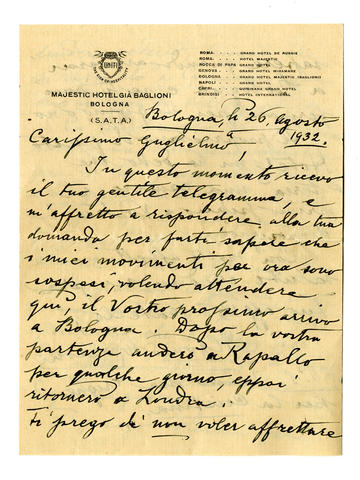 UNITI
THE SIGN OF HOSPITALITY
MAJESTIC HOTEL GIÀ BAGLIONI
BOLOGNA
(S.A.T.A.)
ROMA . . . . GRAND HOTEL DE RUSSIE
ROMA . . . . HOTEL MAJESTIC
ROCCA DI PAPA GRAND HOTEL
GENOVA . . . GRAND HOTEL MIRAMARE
BOLOGNA . . GRAND HOTEL MAJESTIC (BAGLIONI)
NAPOLI . . . GRAND HOTEL
CAPRI . . . . QUISISANA GRAND HOTEL
BRINDISI . . . HOTEL INTERNATIONAL
Bologna, li 26, agosto
1932.
Carissimo Guglielmo,
In questo momento ricevo
il tuo gentile telegramma, e
m'affretto a rispondere alla tua
domanda per farti sapere che
i miei movimenti per ora sono
sospesi, volendo attendere
qui, il Vostro prossimo arrivo
a Bologna. Dopo la vostra
partenza anderò a Rapallo
per qualche giorno, eppoi
ritornerò a Londra.
Ti prego di non voler affrettare